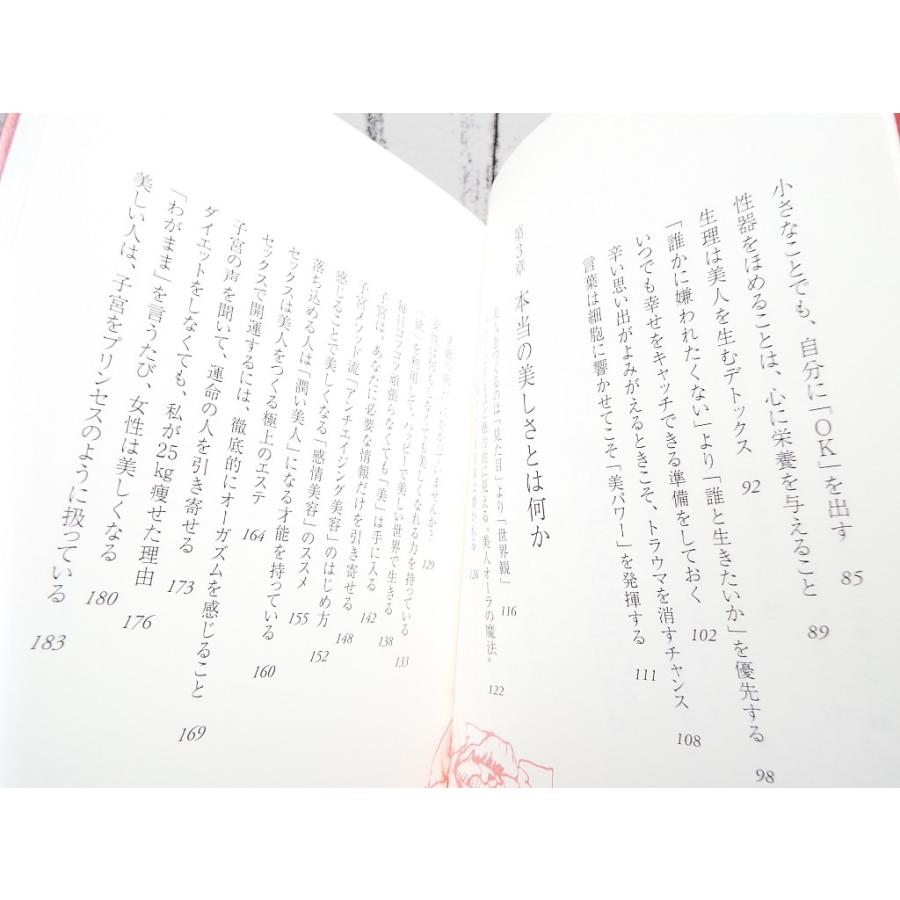 小さなことでも、自分に「OK」を出す 85
性器をほめることは、心に栄養を与えること 89
生理は美人を生むデトックス 92
「誰かに嫌われたくない」より「誰と生きたいか」を優先する 98
いつでも幸せをキャッチできる準備をしておく 102
辛い思い出がよみがえるときこそ、トラウマを消すチャンス 108
言葉は細胞に響かせてこそ「美パワー」を発揮する 111
第3章 本当の美しさとは何か
美人をつくるのは「見た目」より「世界観」 116
に見える〝美人オーラの魔法〟 122
126
いませんか? 129
「欲」を利用して、ハッピーで美しい世界で生きる 138
毎日コツコツ頑張らなくても「美」は手に入る 142
なくても美しくなれる力を持っている 133
子宮は、あなたに必要な情報だけを引き寄せる 148
子宮メソッド流「アンチエイジング美容」のはじめ方 152
感じることで美しくなる「感情美容」のススメ 155
落ち込める人は「潤い美人」になる才能を持っている 160
セックスは美人をつくる極上のエステ 164
セックスで開運するには、徹底的にオーガズムを感じること 169
子宮の声を聞いて、運命の人を引き寄せる 173
ダイエットをしなくても、私が25kg痩せた理由 176
「わがまま」を言うたび、女性は美しくなる 180
美しい人は、子宮をプリンセスのように扱っている 183